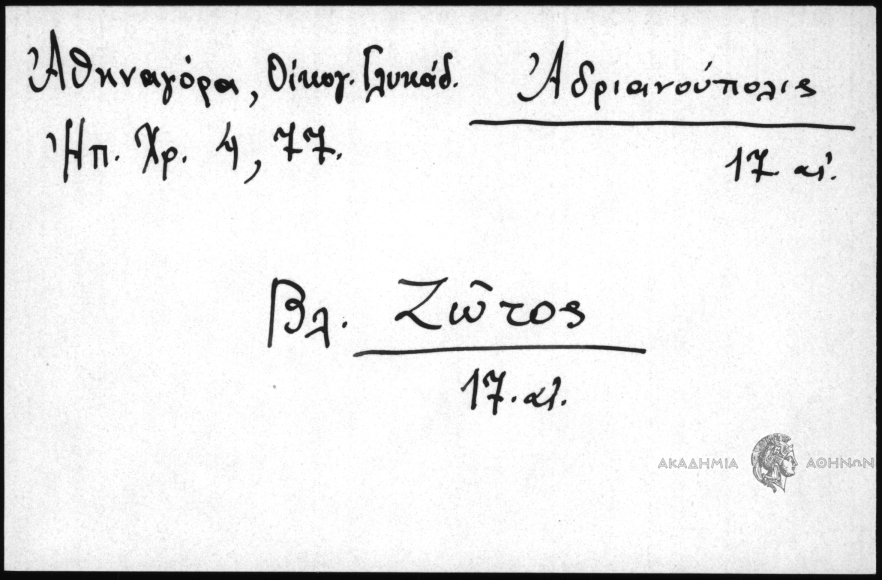 Ἀθηναγόρα, Οἰκογ. Γλυκάδ.
Ἠπ. Χρ. 4, 77.
Ἀδριανούπολις
17 αἰ.
Βλ. Ζῶτος
17. αἰ.
ΑΚΑΔΗΜΙΑ ΑΘΗΝΩΝ